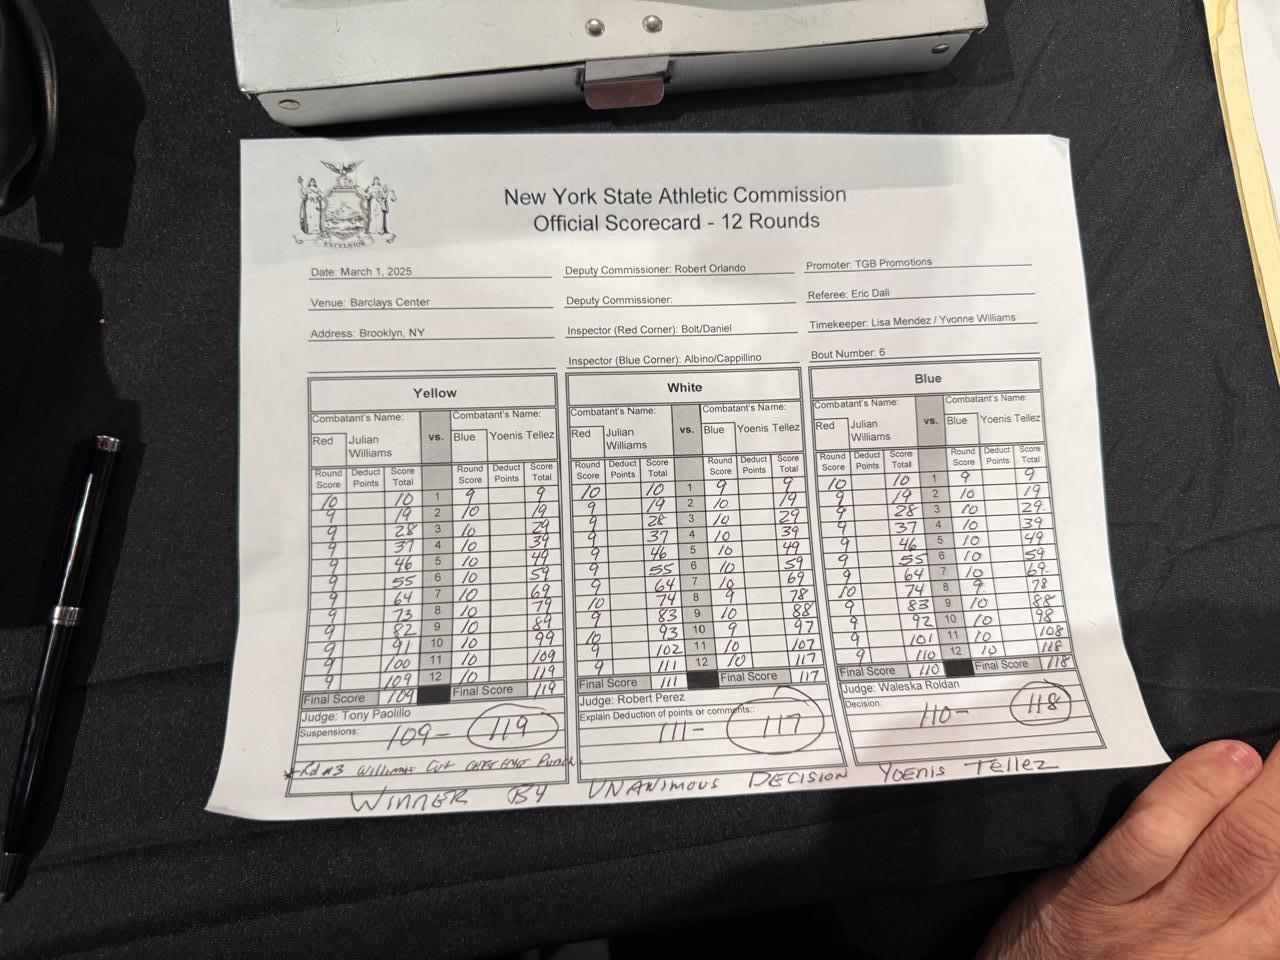 EXCELSIOR
New York State Athletic Commission
Official Scorecard - 12 Rounds
Date: March 1, 2025
Venue: Barclays Center
Address: Brooklyn, NY
Deputy Commissioner: Robert Orlando
Deputy Commissioner:
Inspector (Red Corner): Bolt/Daniel
Inspector (Blue Corner): Albino/Cappillino
Promoter: TGB Promotions
Referee: Eric Dali
Timekeeper: Lisa Mendez / Yvonne Williams
Bout Number: 6
Yellow
Combatant's Name: vs. Combatant's Name:
Red Julian Williams Blue Yoenis Tellez
Round Score Deduct Points Score Total Round Score Deduct Points Score Total
10 10 1 9 9
9 19 2 10 19
9 28 3 10 29
9 37 4 10 39
9 46 5 10 49
9 55 6 10 59
9 64 7 10 69
9 73 8 10 79
9 82 9 10 89
9 91 10 10 99
9 100 11 10 109
9 109 12 10 119
Final Score 109 Final Score 119
Judge: Tony Paolillo
Suspensions: 109- 119
*Rd #3 Williams Cut Over Eye Punch
White
Combatant's Name: vs. Combatant's Name:
Red Julian Williams Blue Yoenis Tellez
Round Score Deduct Points Score Total Round Score Deduct Points Score Total
10 10 1 9 9
9 19 2 10 19
9 28 3 10 29
9 37 4 10 39
9 46 5 10 49
9 55 6 10 59
9 64 7 10 69
10 74 8 9 78
9 83 9 10 88
10 93 10 9 97
9 102 11 10 107
9 111 12 10 117
Final Score 111 Final Score 117
Judge: Robert Perez
Explain Deduction of points or comments::
111- 117
Blue
Combatant's Name: vs. Combatant's Name:
Red Julian Williams Blue Yoenis Tellez
Round Score Deduct Points Score Total Round Score Deduct Points Score Total
10 10 1 9 9
9 19 2 10 19
9 28 3 10 29
9 37 4 10 39
9 46 5 10 49
9 55 6 10 59
9 64 7 10 69
10 74 8 9 78
9 83 9 10 88
9 92 10 10 98
9 101 11 10 108
9 110 12 10 118
Final Score 110 Final Score 118
Judge: Waleska Roldan
Decision: 110- 118
WINNER BY UNANIMOUS DECISION YOENIS TELLEZ